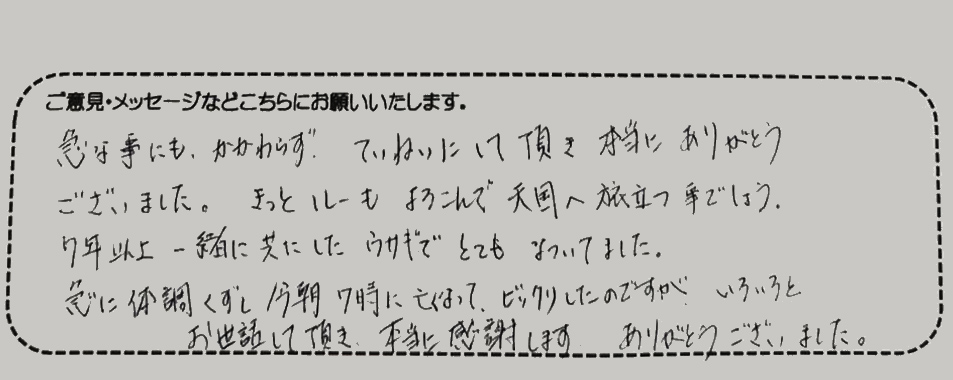 ご意見・メッセージなどこちらにお願いいたします。
急な事にも、かかわらず、ていねいにして頂き本当にありがとう
ございました。きっとルーもよろこんで天国へ旅立つ事でしょう。
7年以上一緒に共にしたウサギでとてもなついてました。
急に体調くずし今朝7時に亡くなって、ビックリしたのですが、いろいろと
お世話して頂き、本当に感謝します ありがとうございました。